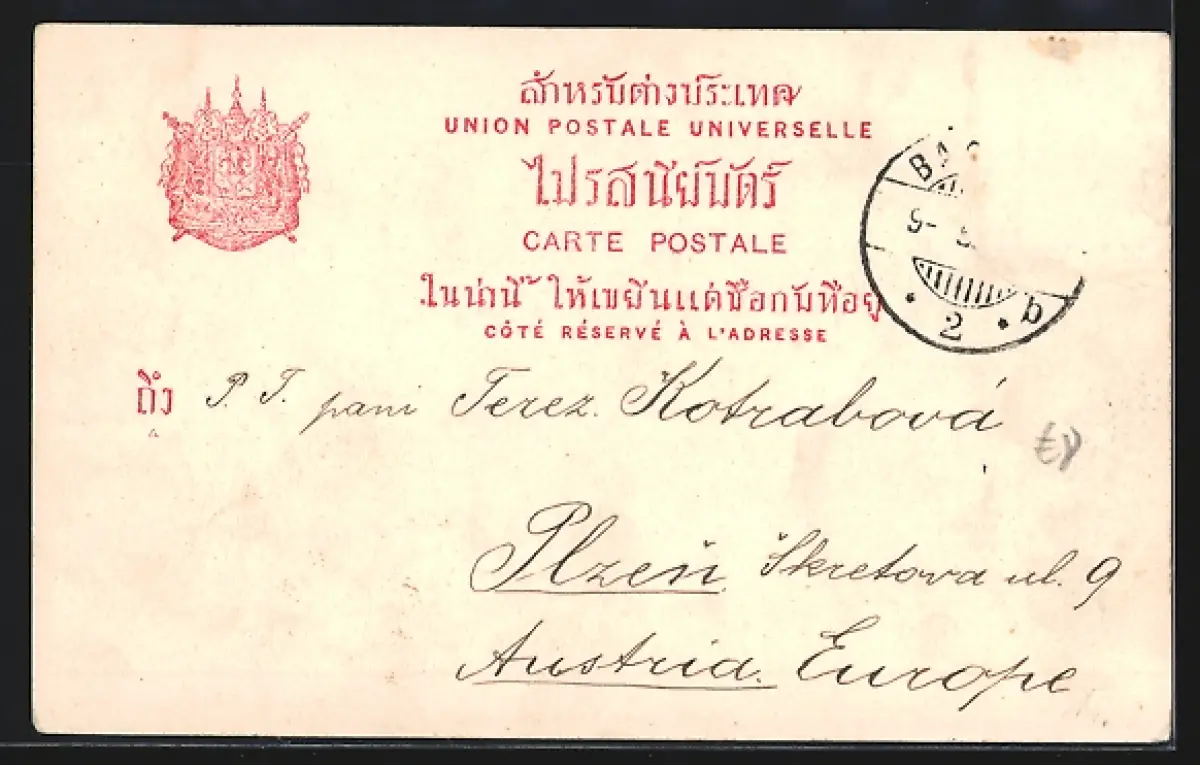 สำหรับต่างประเทศ
UNION POSTALE UNIVERSELLE
ไปรสนียบัตร์
CARTE POSTALE
ในน่านี้ ให้เขียนแต่ชื่อกับที่อยู่
CÔTÉ RÉSERVÉ À L'ADRESSE
ถึง P. T. paní Terez. Kotrabová
Plzeň Škretova ul. 9
Austria. Europe
9-
2 b